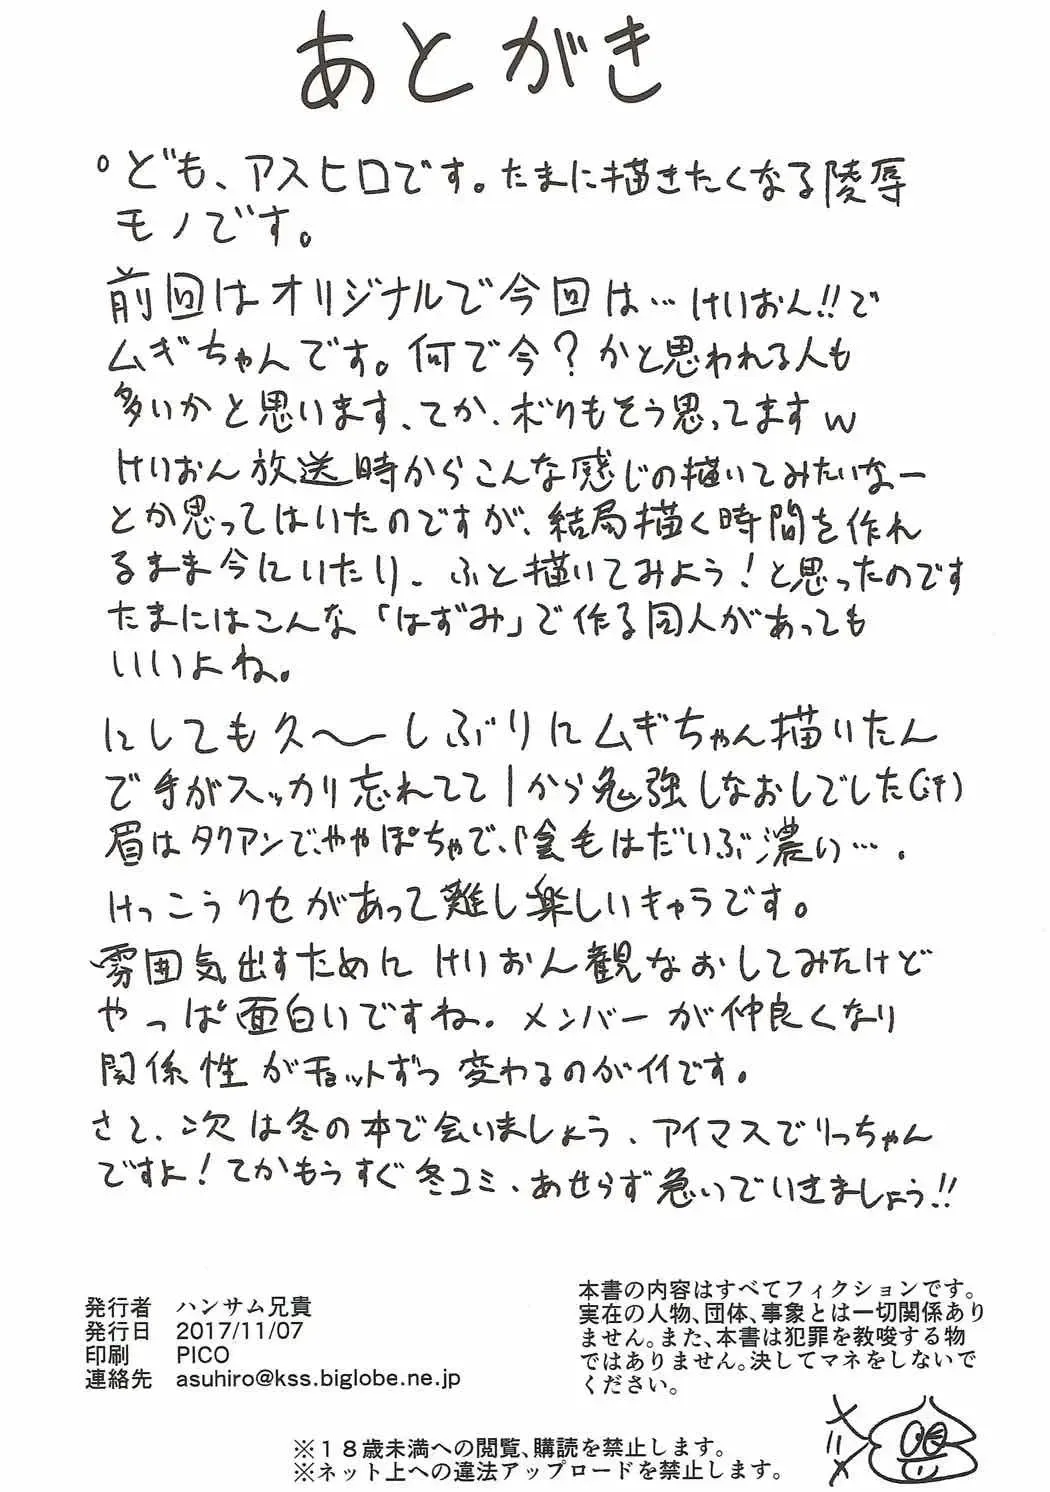 あとがき
°ども、アスヒロです。たまに描きたくなる陵辱
モノです。
前回はオリジナルで今回は…けいおん!!で
ムギちゃんです。何で今?かと思われる人も
多いかと思います、てか、ボクもそう思ってますw
けいおん放送時からこんな感じの描いてみたいなー
とか思ってはいたのですが、結局描く時間を作れ
るまま今にいたり、ふと描いてみよう!と思ったのです
たまにはこんな「はずみ」で作る同人があっても
いいよね。
にしても久〜しぶりにムギちゃん描いたん
で手がスッカリ忘れてて1から勉強しなおしでした(汗)
眉はタクアンで、
けっこうクセがあって難し楽しいキャラです。
雰囲気出すためにけいおん観なおしてみたけど
やっぱ面白いですね。メンバーが仲良くなり
関係性がチョットずつ変わるのがイイです。
さて、次は冬の本で会いましょう、アイマスでりっちゃん
ですよ!てかもうすぐ冬コミ、あせらず急いでいきましょう!!
発行者 ハンサム兄貴
発行日 2017/11/07
印刷 PICO
連絡先 asuhiro@kss.biglobe.ne.jp
本書の内容はすべてフィクションです。
実在の人物、団体、事象とは一切関係あり
ません。また、本書は犯罪を教唆する物
ではありません。決してマネをしないで
ください。
※18歳未満への閲覧、購読を禁止します。
※ネット上への違法アップロードを禁止します。